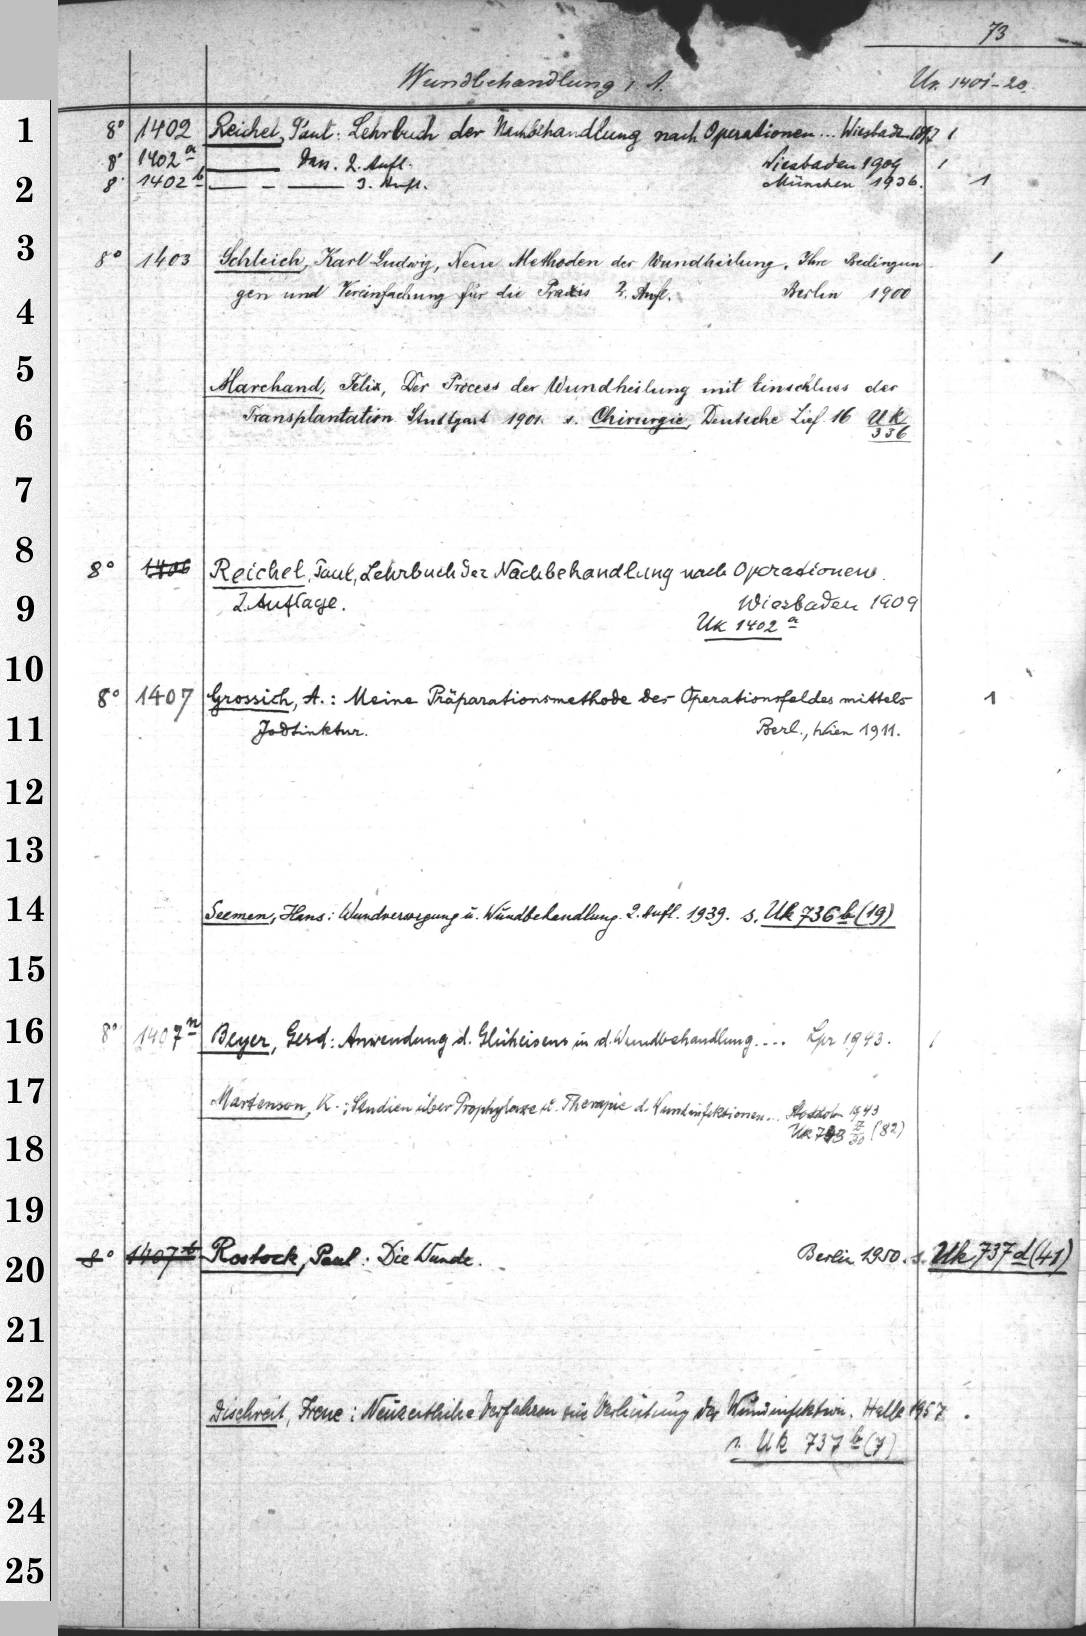 73
Wundbehandlung i. A. Uk. 1401-20.
1 8° 1402 Reichel, Paul: Lehrbuch der Nachbehandlung nach Operationen... Wiesbaden 1897 1
8° 1402a Dass. 2. Aufl. Wiesbaden 1909 1
2 8° 1402b 3. Aufl. München 1936. 1
3 8° 1403 Schleich, Karl Ludwig, Neue Methoden der Wundheilung. Ihre Bedingun 1
4 gen und Vereinfachung für die Praxis 2. Aufl. Berlin 1900
5 Marchand, Felix, Der Process der Wundheilung mit Einschluss der
6 Transplantation Stuttgart 1901. s. Chirurgie, Deutsche Lief. 16 Uk
336
7
8 8° 1406 Reichel, Paul, Lehrbuch der Nachbehandlung nach Operationen.
9 2. Auflage. Wiesbaden 1909
Uk 1402a
10
8° 1407 Grossich, A.: Meine Präparationsmethode des Operationsfeldes mittels 1
11 Jodtinktur. Berl., Wien 1911.
12
13
14 Seemen, Hans: Wundversorgung u. Wundbehandlung. 2. Aufl. 1939. s. Uk 736b (19)
15
16 8° 1407n Beyer, Gerd: Anwendung d. Glüheisens in d. Wundbehandlung.... Lpz 1943. 1
17 Martenson, K.: Studien über Prophylaxe u. Therapie d. Wundinfektionen... 1943
Uk 793 (82)
18
19
20 8° 1407b Rostock, Paul: Die Wunde. Berlin 1950. s. Uk 737d (41)
21
22 Dischreit, Irene: Neuzeitliche Verfahren zur Verhütung der Wundinfektion. Halle 1957.
23 s. Uk 737b (7)
24
25